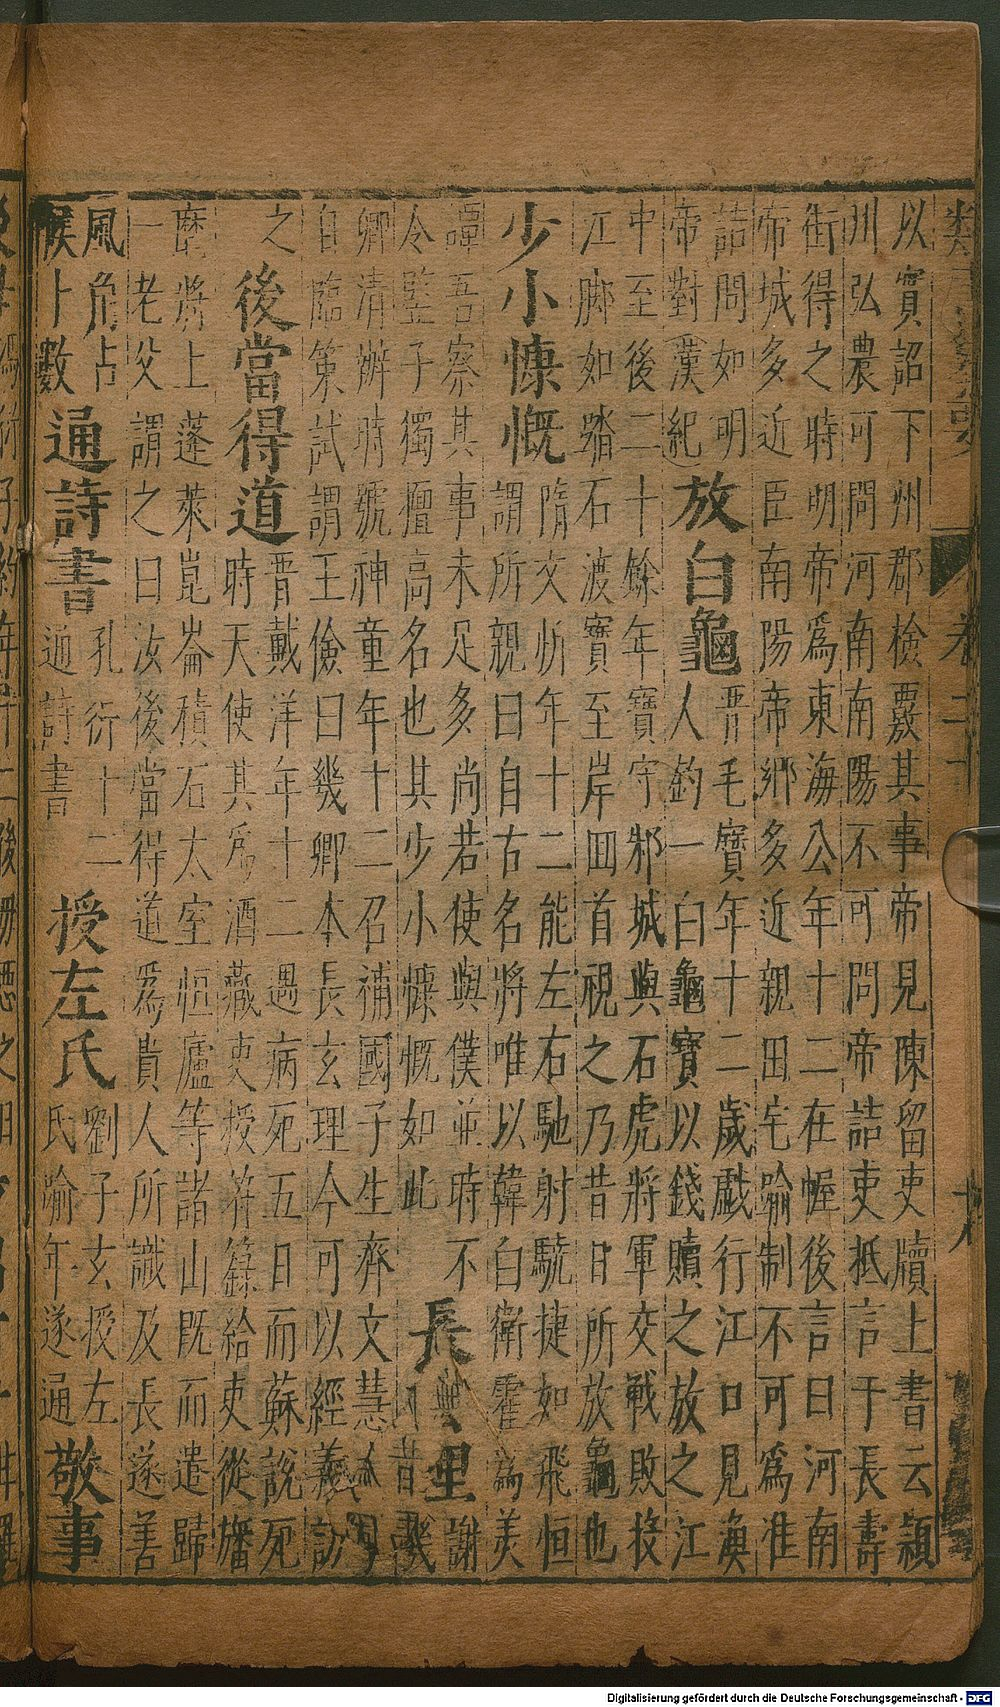 卷二十
以實詔下州郡檢覈其事帝見陳留吏牘上書云潁
川弘農可問河南南陽不可問帝詰吏抵言于長壽
街得之時明帝爲東海公年十二在幄後言曰河南
帝城多近臣南陽帝鄉多近親田宅踰制不可爲准
詰問如明
帝對漢紀
放白龜
晋毛寶年十二歲戲行江口見漁
人釣一白龜寶以錢贖之放之江
中至後二十餘年寶守邾城與石虎將軍交戰敗投
江脚如踏石渡寶至岸回首視之乃昔日所放龜也
少小慷慨
隋文忻年十二能左右馳射驍捷如飛恒
謂所親曰自古名將唯以韓白衛霍爲美
譚吾察其事未足多尚若使與僕並時不
令豎子獨擅高名也其少小慷慨如此
長 理
謝
幾
卿清辦時號神童年十二召補國子生齊文慧太子
自臨策試謂王儉曰幾卿本長玄理今可以經義訪
之
後當得道
晋戴洋年十二遇病死五日而蘇說死
時天使其爲酒藏吏授符籙給吏從旛
麾將上蓬萊崑崙積石太室恒廬等諸山既而遣歸
一老父謂之曰汝後當得道爲貴人所識及長遂善
風角占
候卜數
通詩書
孔衍十二
通詩書
授左氏
劉子玄授左
氏踰年遂通
敬事
Digitalisierung gefördert durch die Deutsche Forschungsgemeinschaft - DFG